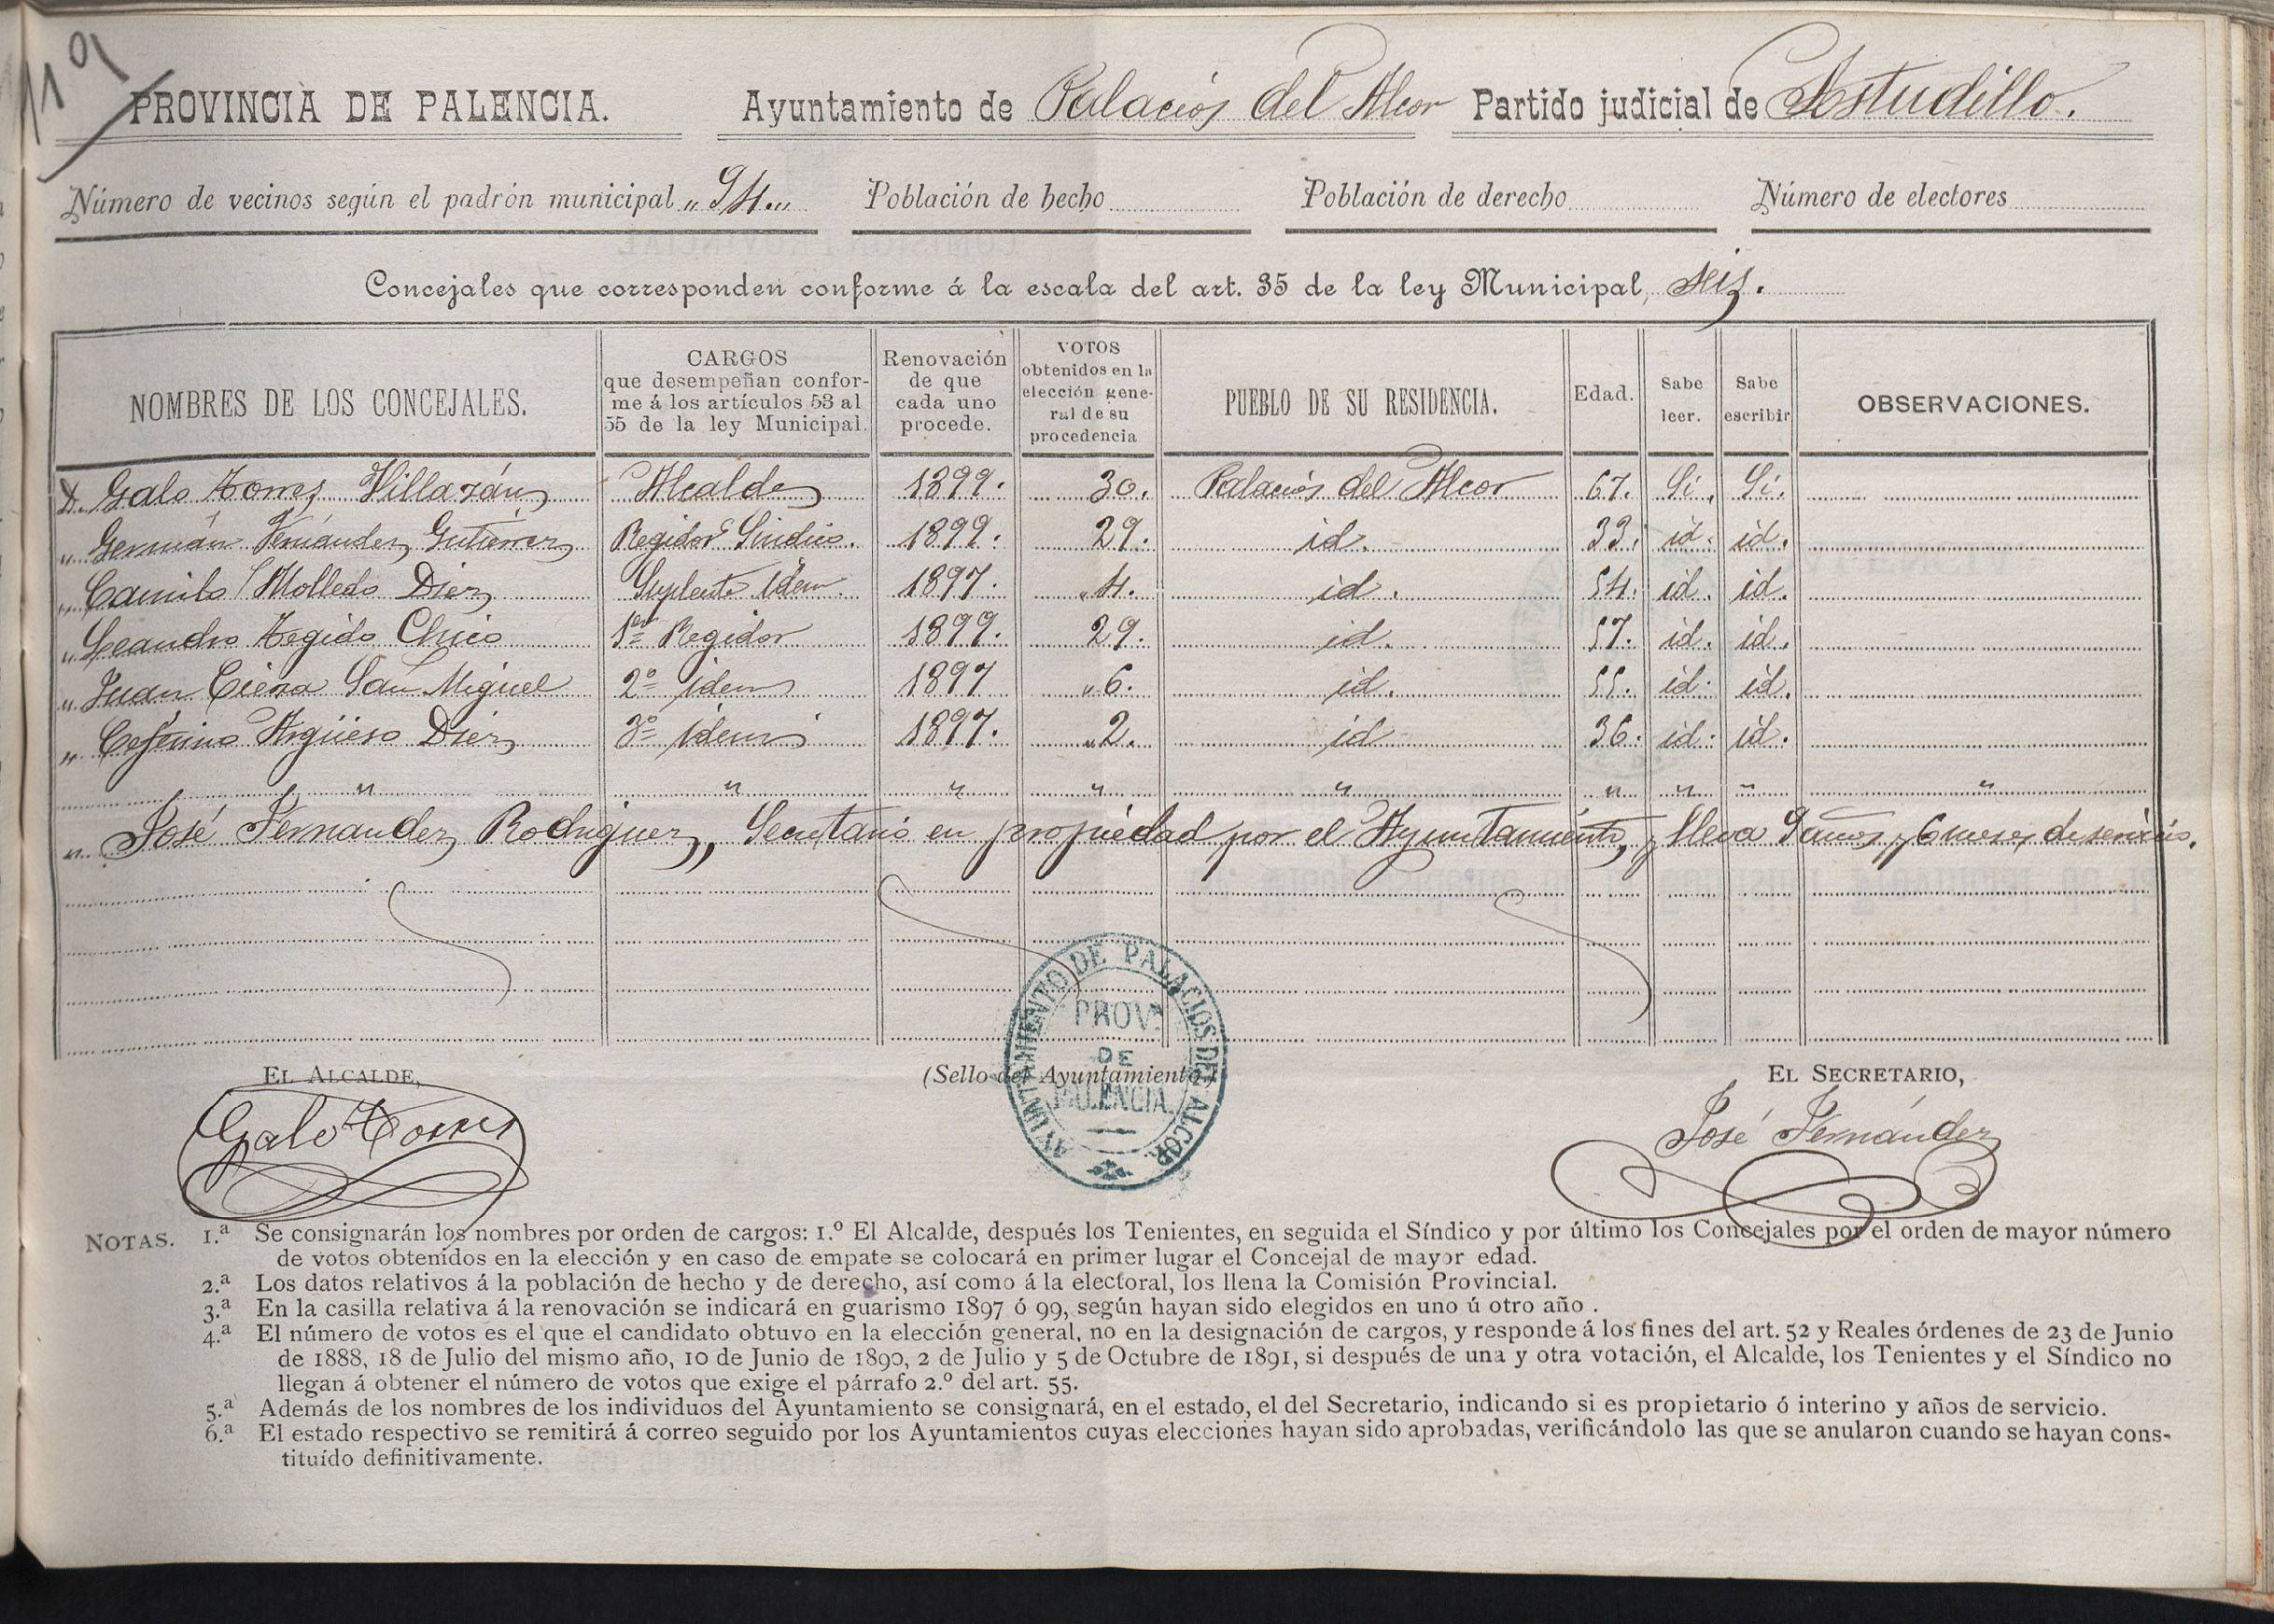 119
PROVINCIA DE PALENCIA. Ayuntamiento de Palacios del Alcor Partido judicial de Astudillo.
Número de vecinos según el padrón municipal „ 94. „ Población de hecho Población de derecho Número de electores
Concejales que corresponden conforme á la escala del art. 35 de la ley Municipal, seis.
NOMBRES DE LOS CONCEJALES. CARGOS que desempeñan conforme á los artículos 53 al 55 de la ley Municipal. Renovación de que cada uno procede. VOTOS obtenidos en la elección general de su procedencia PUEBLO DE SU RESIDENCIA. Edad. Sabe leer. Sabe escribir OBSERVACIONES.
D. Galo Torres Villazán Alcalde 1899. 30. Palacios del Alcor 67. Sí. Sí.
„ Germán Fernández Gutiérrez Regidor Síndico. 1899. 29. id. 33. id. id.
„ Camilo Molledo Diez Suplente idem 1897. „4. id. 54. id. id.
„ Leandro Tegido Chico 1er Regidor 1899. 29. id. 57. id. id.
„ Juan Cieza San Miguel 2º idem 1897 „6. id. 55. id. id.
„ Ceferino Argüeso Diez 3º idem 1897. „2. id 36. id. id.
„ „ „ „ „ „ „ „ „
„ José Fernandez Rodriguez, Secretario en propiedad por el Ayuntamiento, y lleva 9 años y 6 meses de servicio.
EL ALCALDE, (Sello del Ayuntamiento.) EL SECRETARIO,
AYUNTAMIENTO DE PALACIOS DEL ALCOR
PROVª
DE
PALENCIA.
Galo Torres José Fernández
NOTAS. 1.ª Se consignarán los nombres por orden de cargos: 1.º El Alcalde, después los Tenientes, en seguida el Síndico y por último los Concejales por el orden de mayor número
de votos obtenidos en la elección y en caso de empate se colocará en primer lugar el Concejal de mayor edad.
2.ª Los datos relativos á la población de hecho y de derecho, así como á la electoral, los llena la Comisión Provincial.
3.ª En la casilla relativa á la renovación se indicará en guarismo 1897 ó 99, según hayan sido elegidos en uno ú otro año .
4.ª El número de votos es el que el candidato obtuvo en la elección general, no en la designación de cargos, y responde á los fines del art. 52 y Reales órdenes de 23 de Junio
de 1888, 18 de Julio del mismo año, 10 de Junio de 1890, 2 de Julio y 5 de Octubre de 1891, si después de una y otra votación, el Alcalde, los Tenientes y el Síndico no
llegan á obtener el número de votos que exige el párrafo 2.º del art. 55.
5.ª Además de los nombres de los individuos del Ayuntamiento se consignará, en el estado, el del Secretario, indicando si es propietario ó interino y años de servicio.
6.ª El estado respectivo se remitirá á correo seguido por los Ayuntamientos cuyas elecciones hayan sido aprobadas, verificándolo las que se anularon cuando se hayan cons-
tituído definitivamente.